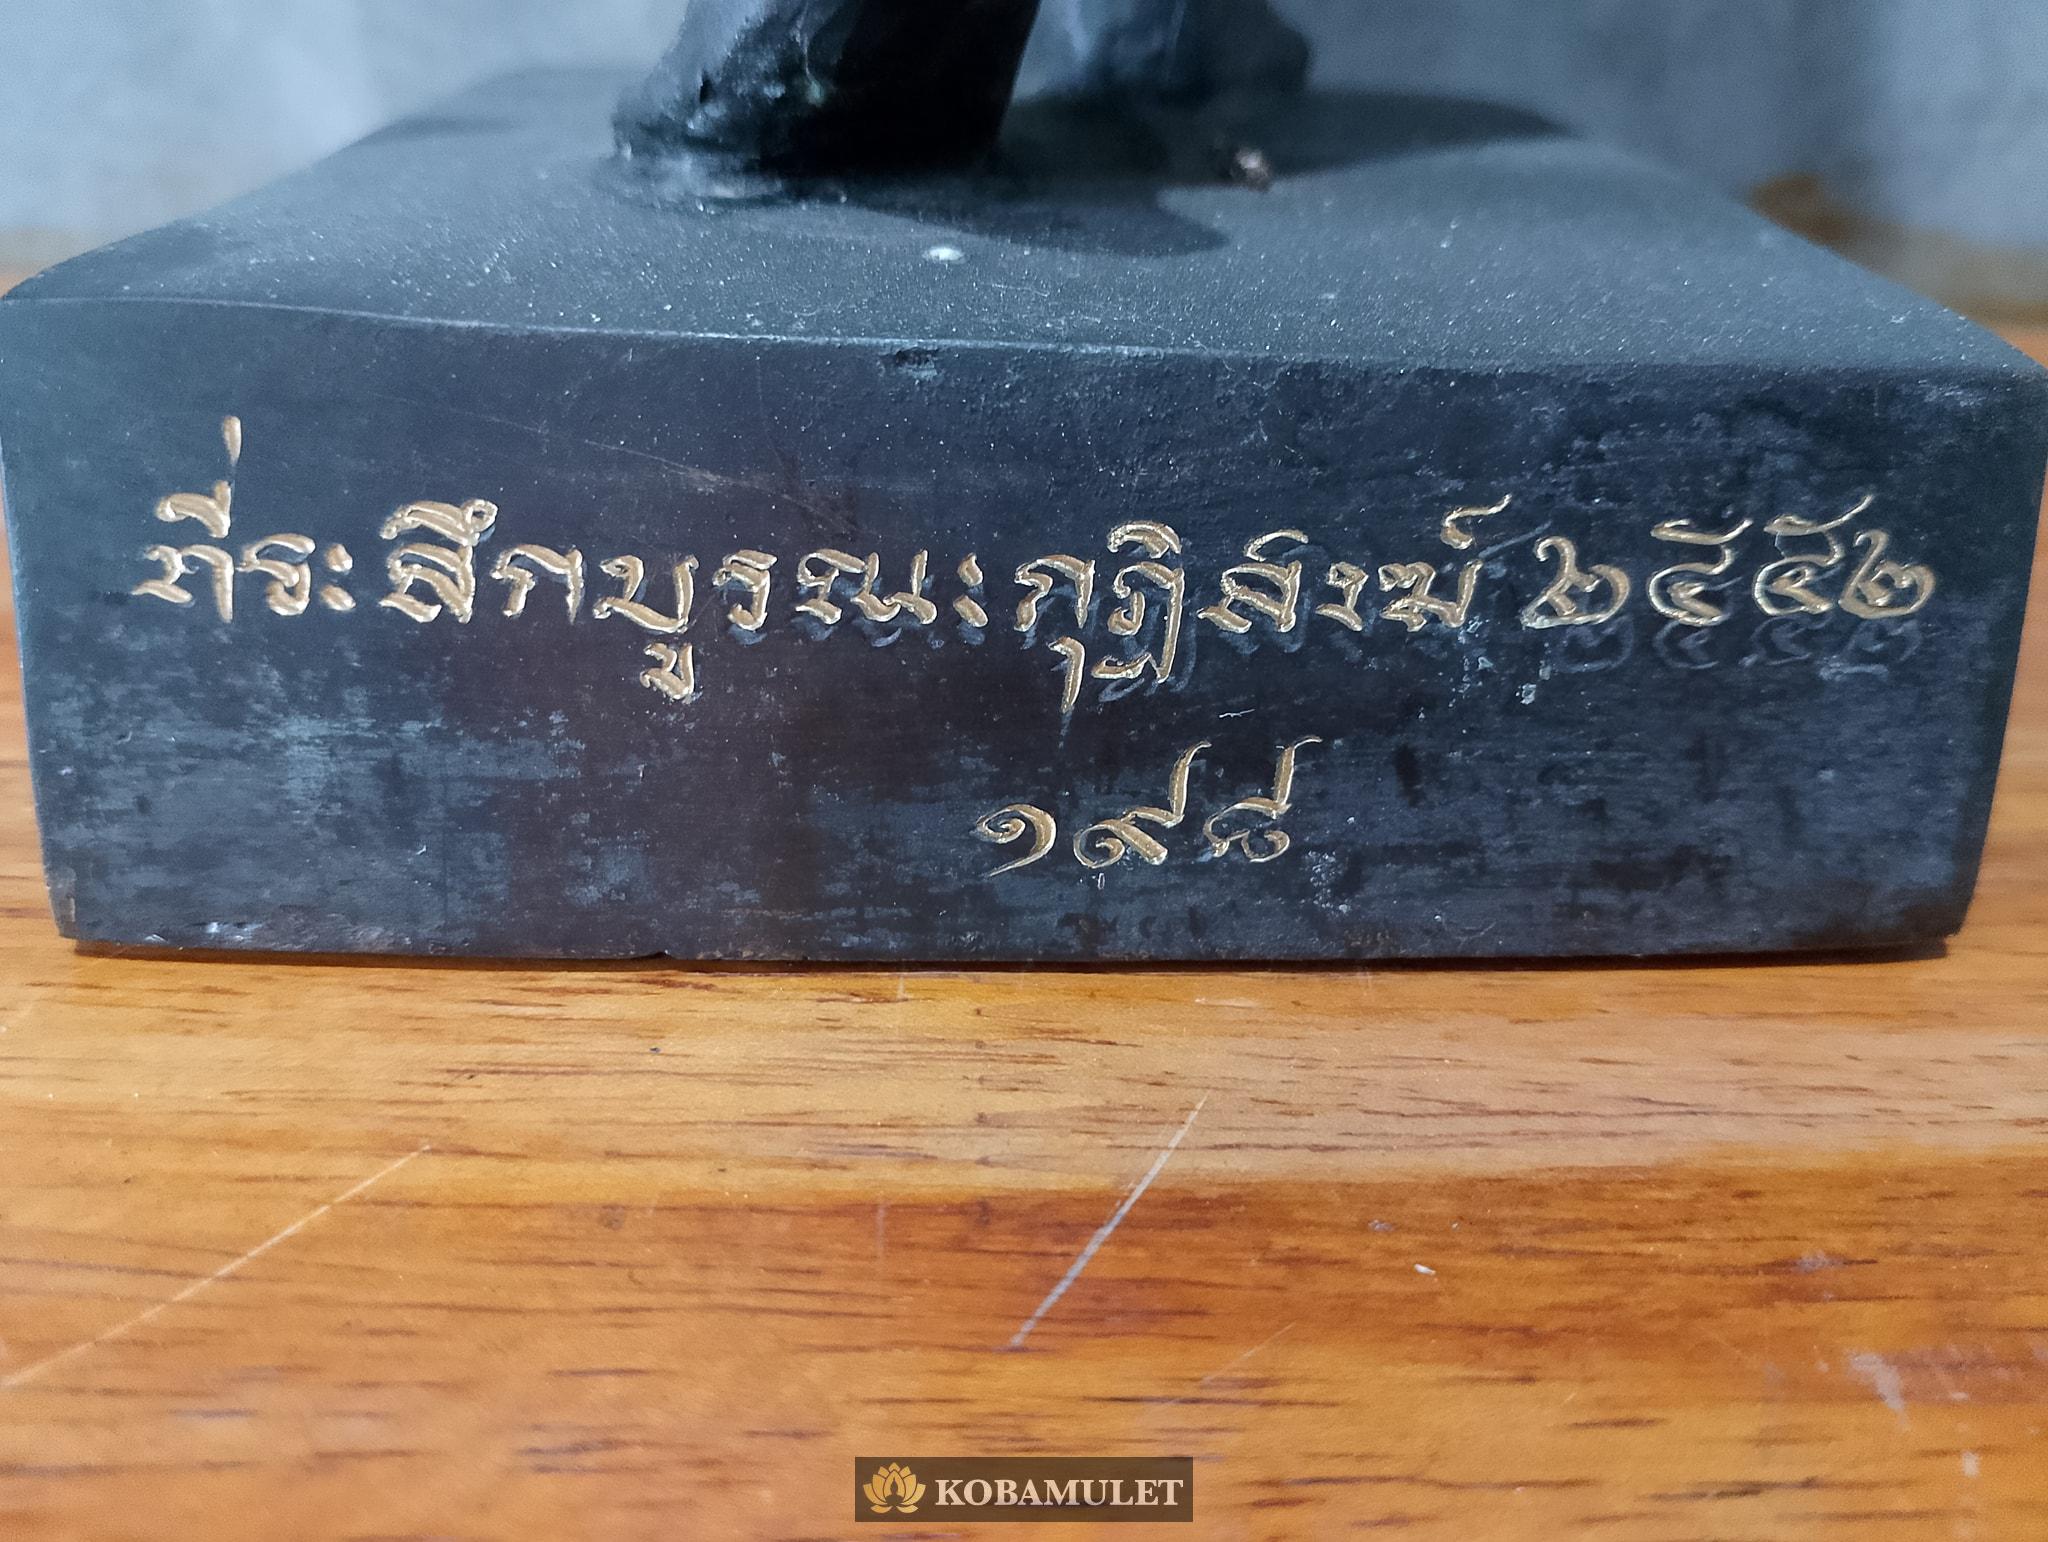 ที่ระลึกบูรณะกุฏิสงฆ์ ๒๕๕๒
๑๙๘
KOBAMULET